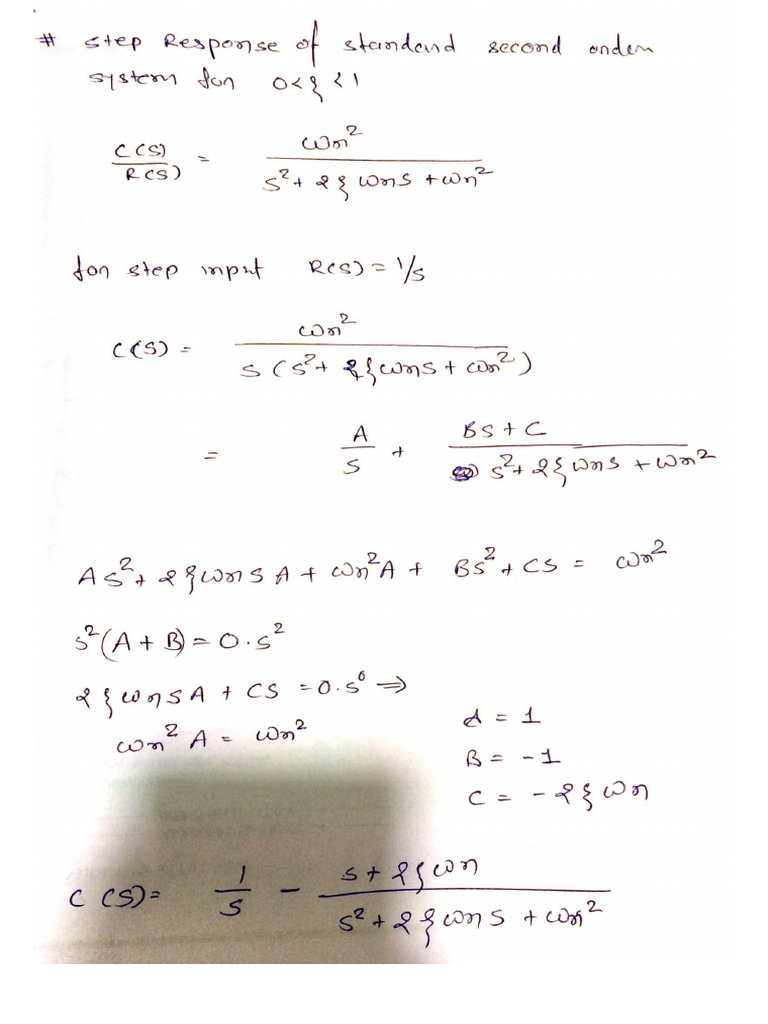 # Step Response of standard second order
system for 0<ξ<1
C(S)/R(S) = ωn²/(s²+2ξωns+ωn²)
for step input R(s)=1/s
C(S) = ωn²/(s(s²+2ξωns+ωn²))
= A/s + (Bs+C)/(s²+2ξωns+ωn²)
As²+2ξωnsA+ωn²A+Bs²+Cs=ωn²
s²(A+B)=0.s²
2ξωnsA+Cs=0.s⁰⇒
ωn²A=ωn²
A=1
B=-1
C=-2ξωn
C(S)= 1/s - (s+2ξωn)/(s²+2ξωns+ωn²)